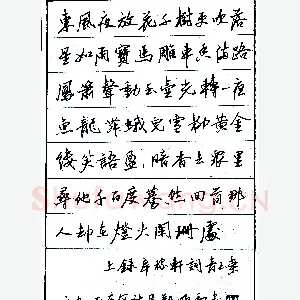 東風夜放花千樹更吹落
星如雨寶馬雕車香滿路
鳳簫聲動玉壺光轉一夜
魚龍舞蛾兒雪柳黃金
縷笑語盈盈暗香去眾里
尋他千百度驀然回首那
人卻在燈火闌珊處
上錄辛稼軒詞青玉案